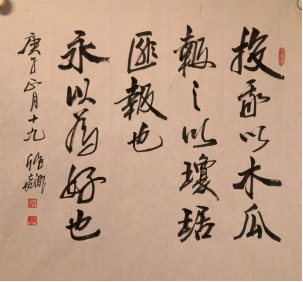 投我以木瓜
報之以瓊琚
匪報也
永以為好也
庚子正月十九